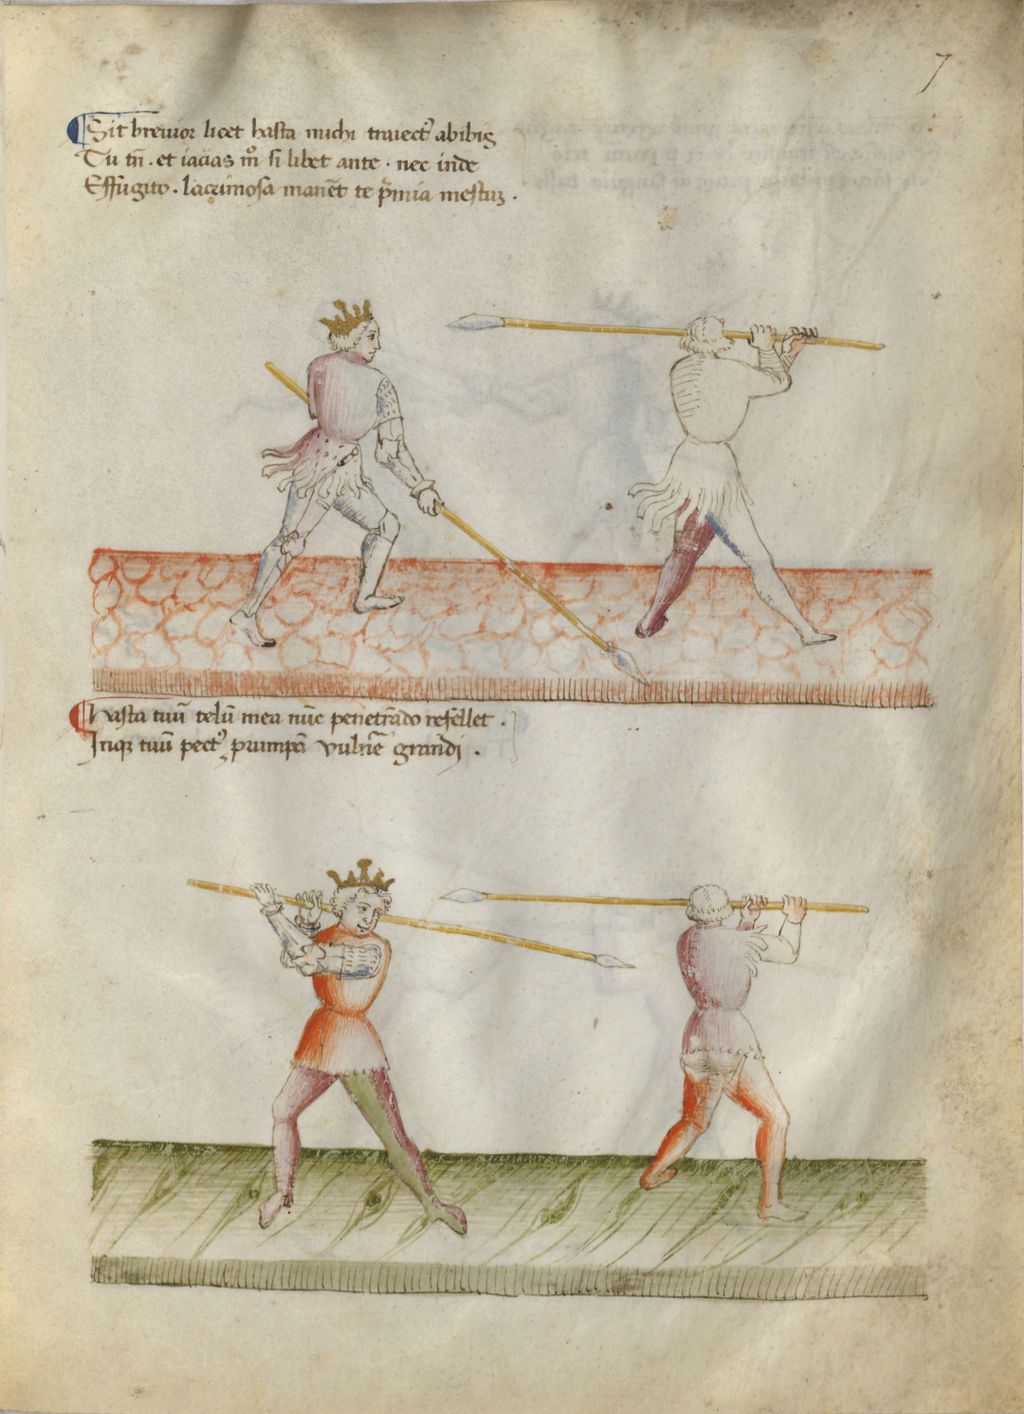 7
Sit breuior licet hasta michi traiectꝰ abibis
Tu tn̄ . et iacias m̊ si libet ante . nec inde
Effugito . lacrimosa manēt te p̄mia mestuꝫ .
hasta tuū telū mea nūc penetrādo refellet .
Inqꝫ tuū pectꝰ prumpā vulnē grandj .